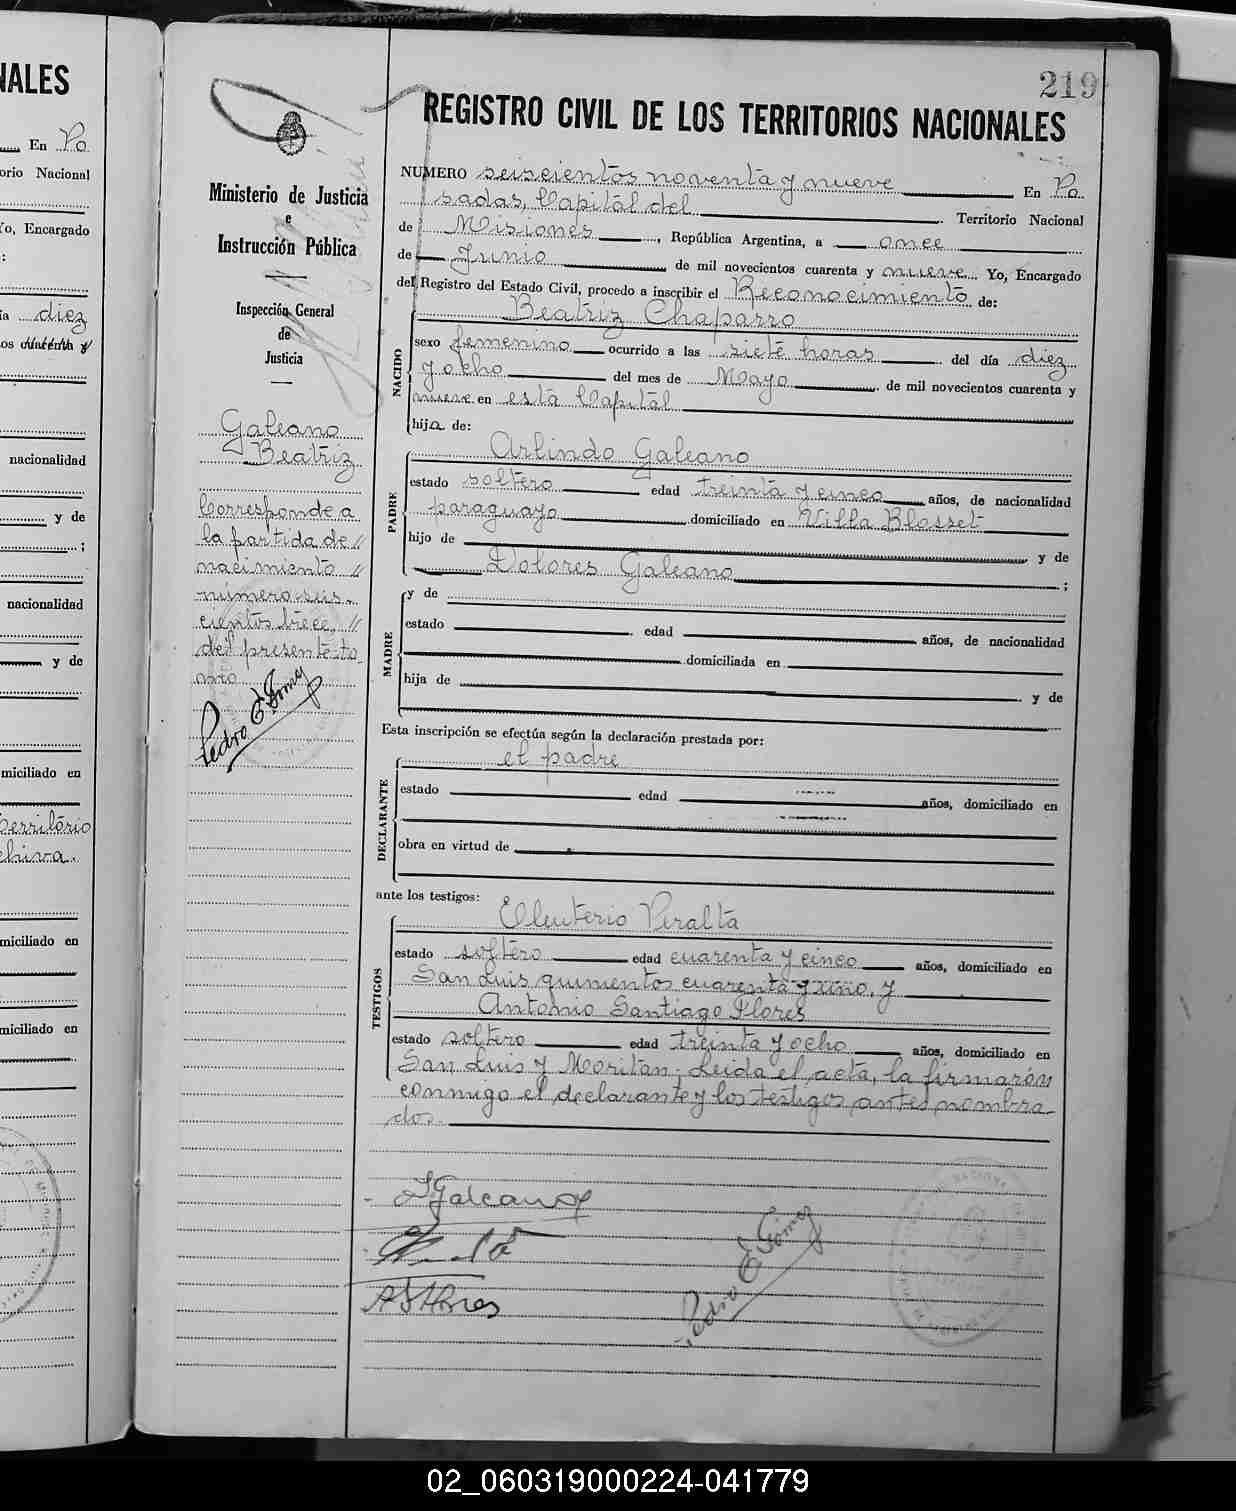 NALES
En Po
orio Nacional
Yo, Encargado
diez
nacionalidad
y de
nacionalidad
y de
miciliado en
territorio
chiva.
miciliado en
miciliado en
219
REGISTRO CIVIL DE LOS TERRITORIOS NACIONALES
Ministerio de Justicia
e
Instrucción Pública
Inspección General
de
Justicia
Galeano
Beatriz
Corresponde a
la partida de //
nacimiento //
número seis-
cientos trece, //
del presente to
mo
Pedro E Gomez
NUMERO seiscientos noventa y nueve En Po
sadas, Capital del Territorio Nacional
de Misiones, República Argentina, a once
de Junio de mil novecientos cuarenta y nueve Yo, Encargado
del Registro del Estado Civil, procedo a inscribir el Reconocimiento de:
NACIDO
Beatriz Chaparro
sexo femenino ocurrido a las siete horas del día diez
y ocho del mes de Mayo de mil novecientos cuarenta y
nueve en esta Capital
hija de:
PADRE
Arlindo Galeano
estado soltero edad treinta y cinco años, de nacionalidad
paraguayo domiciliado en Villa Blosset
hijo de y de
Dolores Galeano ;
MADRE
y de
estado edad años, de nacionalidad
domiciliada en
hija de y de
Esta inscripción se efectúa según la declaración prestada por:
DECLARANTE
el padre
estado edad años, domiciliado en
obra en virtud de
ante los testigos:
TESTIGOS
Eleuterio Peralta
estado soltero edad cuarenta y cinco años, domiciliado en
San Luis quinientos cuarenta y uno, y
Antonio Santiago Flores
estado soltero edad treinta y ocho años, domiciliado en
San Luis y Moritan. Leida el acta, la firmarón
conmigo el declarante y los testigos antes nombra-
dos.
Galeano
A S Flores
Pedro E Gómez
02_060319000224-041779